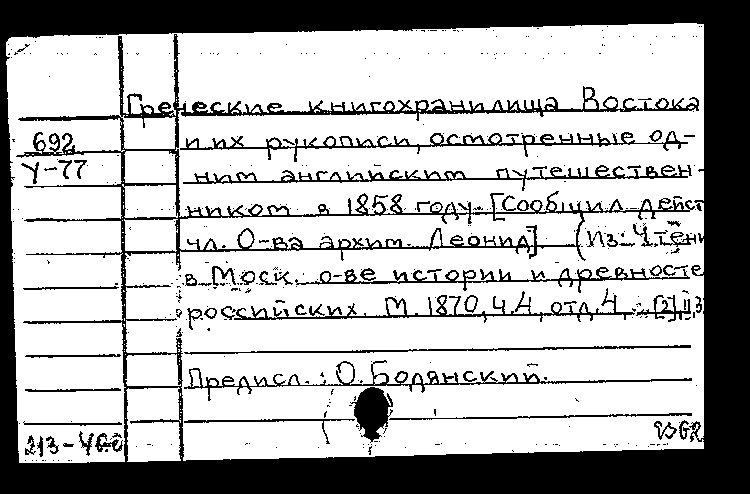 Греческие книгохранилища Востока
692 и их рукописи, осмотренные од-
У-77 ним английским путешествен-
ником в 1858 году. [Сообщил действ
чл. О-ва архим. Леонид]. (Из: Чтени
в Моск. о-ве истории и древносте
российских. М. 1870, ч.4, отд.4, [2], II, 3
Предисл.: О. Бодянский.
213-